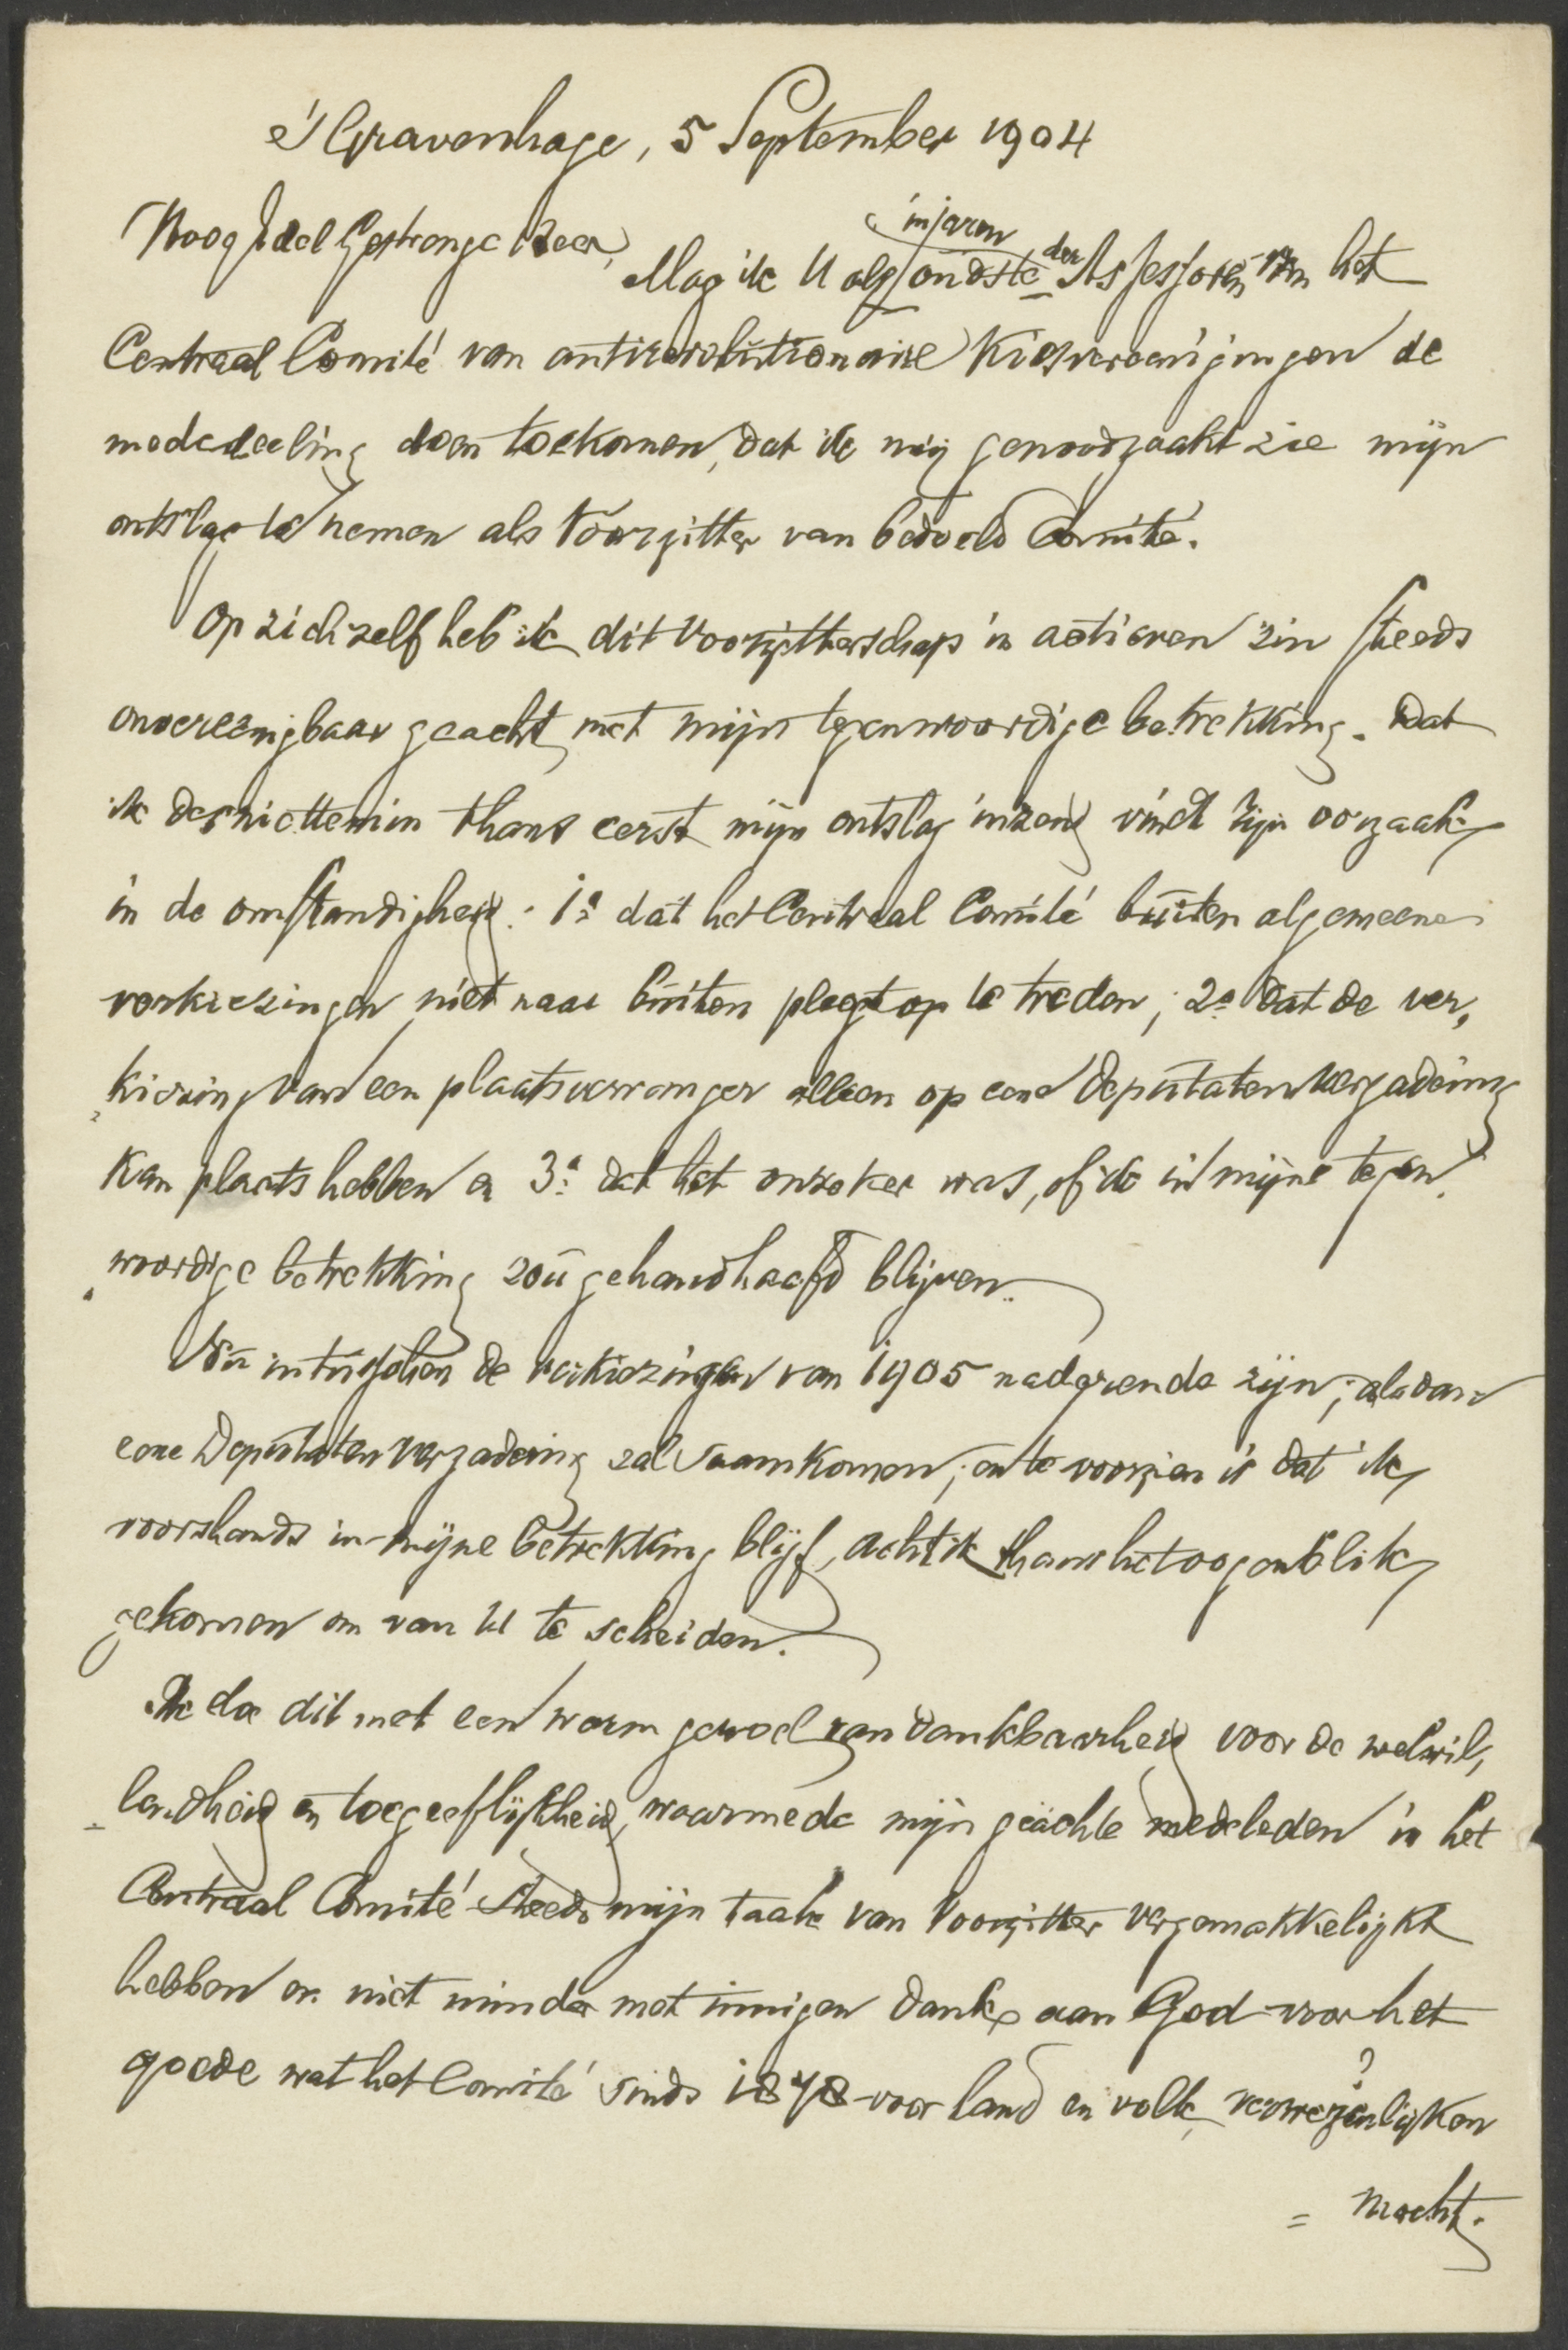 's Gravenhage, 5 September 1904
HoogEdel Gestrenge Heer,
in jaren
Mag ik U als oudste der Assessoren van het
Centraal Comité van antirevolutionaire Kiesvereenigingen de
mededeeling doen toekomen, dat ik mij genoodzaakt zie mijn
ontslag te nemen als Voorzitter van bedoeld Comité.
Op zich zelf heb ik dit Voorzitterschap in actieven zin steeds
onvereenigbaar geacht met mijn tegenwoordige betrekking. Dat
ik desniettemin thans eerst mijn ontslag inzend vindt zijn oorzaak
in de omstandigheid: 1º dat het Centraal Comité buiten algemeene
verkiezingen niet naar buiten pleegt op te treden; 2º dat de ver,
kiezing van een plaatsvervanger alleen op eene Deputatenvergadering
kan plaats hebben en 3º dat het onzeker was, of ik in mijne tegen,
woordige betrekking zou gehandhaafd blijven.
Nu intusschen de verkiezingen van 1905 naderende zijn; alsdan
eene Deputatenvergadering zal saamkomen; en te voorzien is dat ik
voorshands in mijne betrekking blijf, acht ik thans het oogenblik
gekomen om van U te scheiden.
Ik doe dit met een warm gevoel van dankbaarheid voor de welwil,
lendheid en toegeeflijkheid, waarmede mijn geachte medeleden in het
Centraal Comité steeds mijn taak van Voorzitter vergemakkelijkt
hebben en niet minder met innigen dank aan God voor het
goede wat het Comité sinds 1878 voor land en volk verwezenlijken
= mocht.